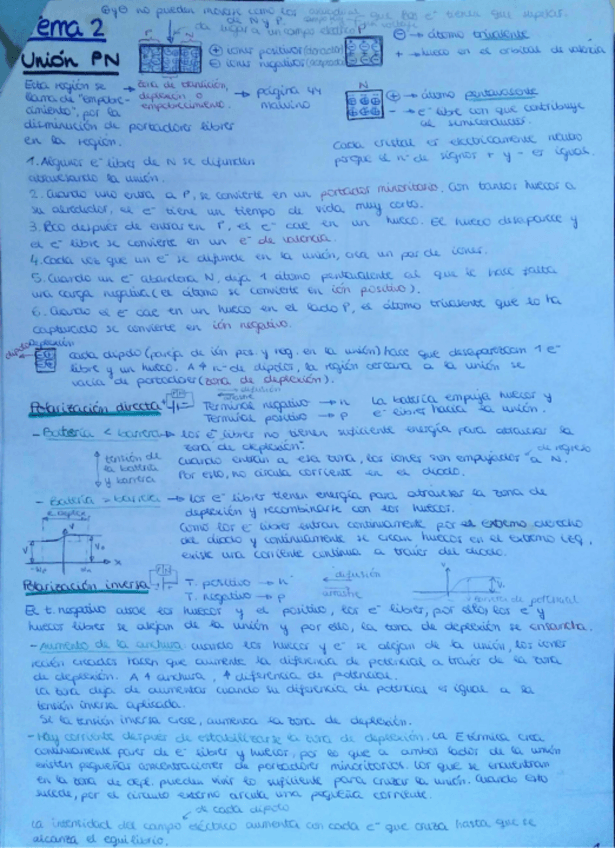 ⊕ y ⊖ no pueden moverse como los
que los e⁻ tienen que repeler.
da lugar a un campo eléctrico
Tema 2
Unión PN
P N
⊕ iones positivos
⊖ iones negativos
P
⊖ → átomo trivalente
+ → hueco en el orbital de valencia
Esta región se → zona de transición, → página 44
llama de "empobre- deplexión o malvino
cimiento", por la empobrecimiento.
disminución de portadores libres
en la región.
N
⊕ → átomo pentavalente
- → e⁻ libre con que contribuye
al semiconductor.
Cada cristal es eléctricamente neutro
porque el nº de signos + y - es igual.
1. Algunos e⁻ libres de N se difunden
atravesando la unión.
2. Cuando uno entra a P, se convierte en un portador minoritario. Con tantos huecos a
su alrededor, el e⁻ tiene un tiempo de vida muy corto.
3. Poco después de entrar en P, el e⁻ cae en un hueco. El hueco desaparece y
el e⁻ libre se convierte en un e⁻ de valencia.
4. Cada vez que un e⁻ se difunde en la unión, crea un par de iones.
5. Cuando un e⁻ abandona N, deja 1 átomo pentavalente al que le hace falta
una carga negativa (el átomo se convierte en ión positivo).
6. Cuando el e⁻ cae en un hueco en el lado P, el átomo trivalente que lo ha
capturado se convierte en ión negativo.
dipolo deplexión
cada dipolo (pareja de ión pos. y neg. en la unión) hace que desaparezcan 1 e⁻
libre y un hueco. A ↑ nº de dipolos, la región cercana a la unión se
vacía de portadores (zona de deplexión).
difusión
arrastre
Polarización directa
Terminal negativo → n
Terminal positivo → p
La batería empuja huecos y
e⁻ libres hacia la unión.
- Batería < barrera → Los e⁻ libres no tienen suficiente energía para atravesar la
zona de deplexión.
tensión de
la batería
y barrera
Cuando entran a esa zona, los iones son empujados de regreso a N.
Por esto, no circula corriente en el diodo.
- Batería > barrera → Los e⁻ libres tienen energía para atravesar la zona de
deplexión y recombinarse con los huecos.
Como los e⁻ libres entran continuamente por el extremo derecho
del diodo y continuamente se crean huecos en el extremo izq.,
existe una corriente continua a través del diodo.
V V₀ x
Polarización inversa
T. positivo → n
T. negativo → p
difusión
arrastre
barrera de potencial
El t. negativo atrae los huecos y el positivo, los e⁻ libres, por ello, los e⁻ y
huecos libres se alejan de la unión y por ello, la zona de deplexión se ensancha.
- Aumento de la anchura: cuando los huecos y e⁻ se alejan de la unión, los iones
recién creados hacen que aumente la diferencia de potencial a través de la zona
de deplexión. A ↑ anchura, ↑ diferencia de potencial.
La zona deja de aumentar cuando su diferencia de potencial es igual a la
tensión inversa aplicada.
Si la tensión inversa crece, aumenta la zona de deplexión.
- Hay corriente después de estabilizarse la zona de deplexión. La E térmica crea
continuamente pares de e⁻ libres y huecos, por lo que a ambos lados de la unión
existen pequeñas concentraciones de portadores minoritarios. Los que se encuentran
en la zona de depl. pueden vivir lo suficiente para cruzar la unión. Cuando esto
sucede, por el circuito externo circula una pequeña corriente.
de cada dipolo
La intensidad del campo eléctrico aumenta con cada e⁻ que cruza hasta que se
alcanza el equilibrio.